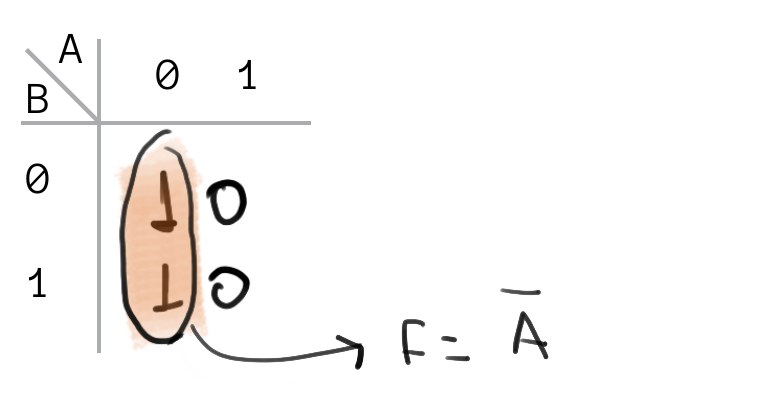 A
B 0 1
0 1 0
1 1 0
F = A̅